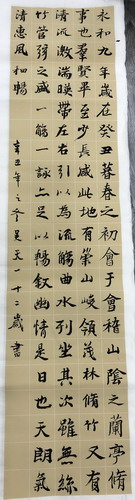 永和九年歲在癸丑暮春之初會于會稽山陰之蘭亭脩
事也羣賢畢至少長咸此地有崇山峻領茂林脩竹又有
清流激湍暎帶左右引以為流觴曲水列坐其次雖無絲
竹管弦之盛一觴一詠亦足以暢叙幽情是日也天朗氣
清惠風和暢
辛丑年之冬吴天一十二歲書